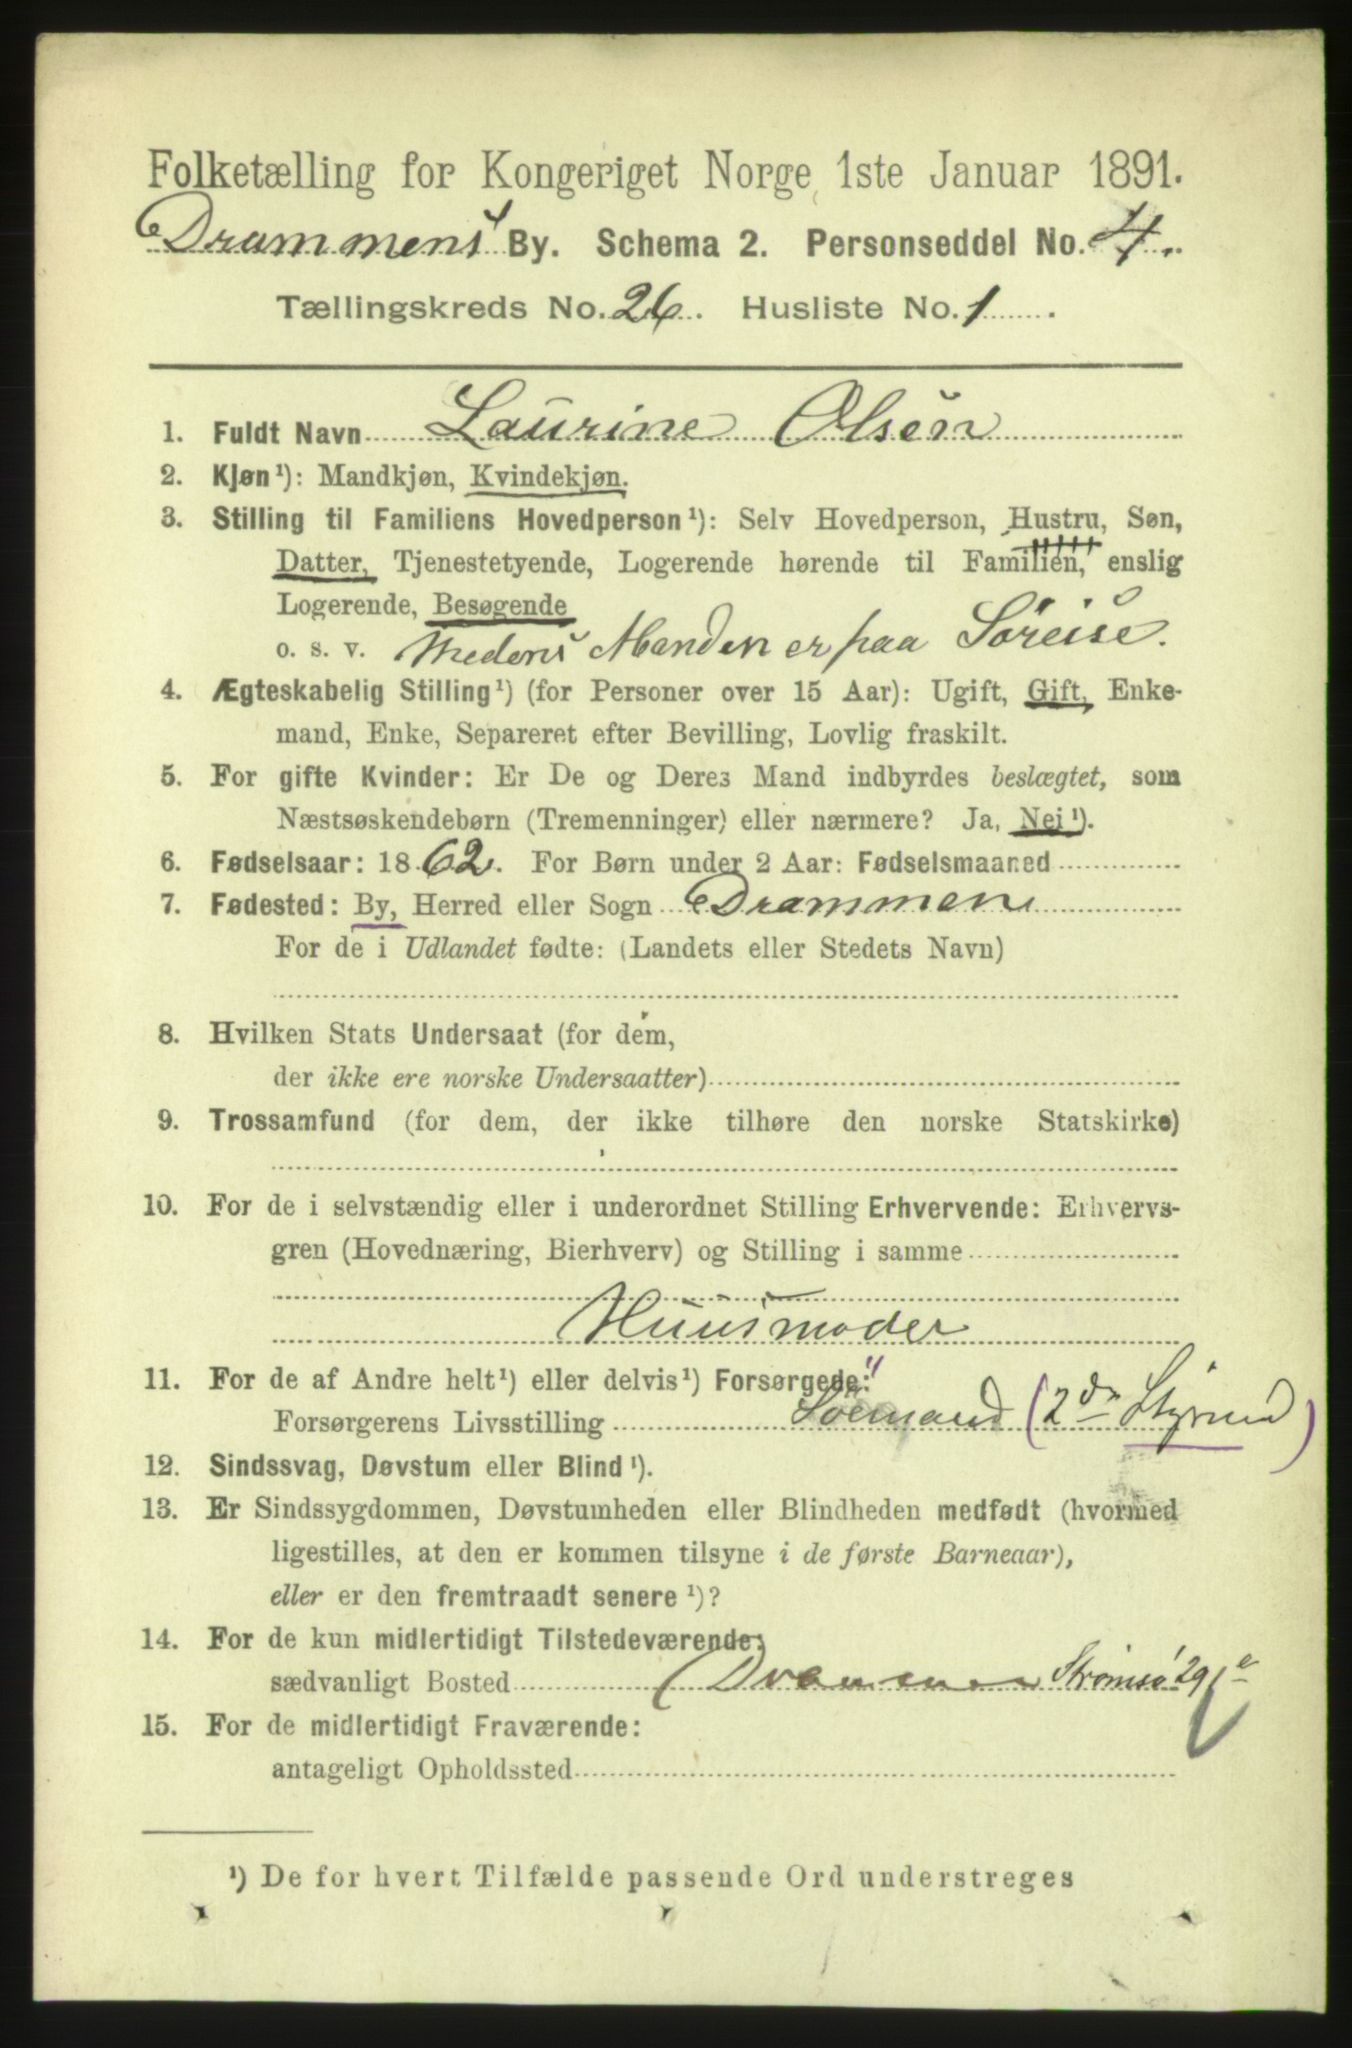 Folketælling for Kongeriget Norge 1ste Januar 1891.
Drammens By. Schema 2. Personseddel No. 4.
Tællingskreds No. 26. Husliste No. 1.
1. Fuldt Navn Laurine Olsen
2. Kjøn¹): Mandkjøn, Kvindekjøn.
3. Stilling til Familiens Hovedperson¹): Selv Hovedperson, Hustru, Søn,
Datter, Tjenestetyende, Logerende hørende til Familien, enslig
Logerende, Besøgende
o. s. v. medens Manden er paa Söreise.
4. Ægteskabelig Stilling¹) (for Personer over 15 Aar): Ugift, Gift, Enke-
mand, Enke, Separeret efter Bevilling, Lovlig fraskilt.
5. For gifte Kvinder: Er De og Deres Mand indbyrdes beslægtet, som
Næstsøskendebørn (Tremenninger) eller nærmere? Ja, Nei¹).
6. Fødselsaar: 1862. For Børn under 2 Aar: Fødselsmaaned
7. Fødested: By, Herred eller Sogn Drammen
For de i Udlandet fødte: (Landets eller Stedets Navn)
8. Hvilken Stats Undersaat (for dem,
der ikke ere norske Undersaatter)
9. Trossamfund (for dem, der ikke tilhøre den norske Statskirke)
10. For de i selvstændig eller i underordnet Stilling Erhvervende: Erhvervs-
gren (Hovednæring, Bierhverv) og Stilling i samme
Huusmoder
11. For de af Andre helt¹) eller delvis¹) Forsørgede:
Forsørgerens Livsstilling Sömand (2den Styrmd)
12. Sindssvag, Døvstum eller Blind¹).
13. Er Sindssygdommen, Døvstumheden eller Blindheden medfødt (hvormed
ligestilles, at den er kommen tilsyne i de første Barneaar),
eller er den fremtraadt senere¹)?
14. For de kun midlertidigt Tilstedeværende:
sædvanligt Bosted (Drammen Strömsö 29
15. For de midlertidigt Fraværende:
antageligt Opholdssted
¹) De for hvert Tilfælde passende Ord understreges